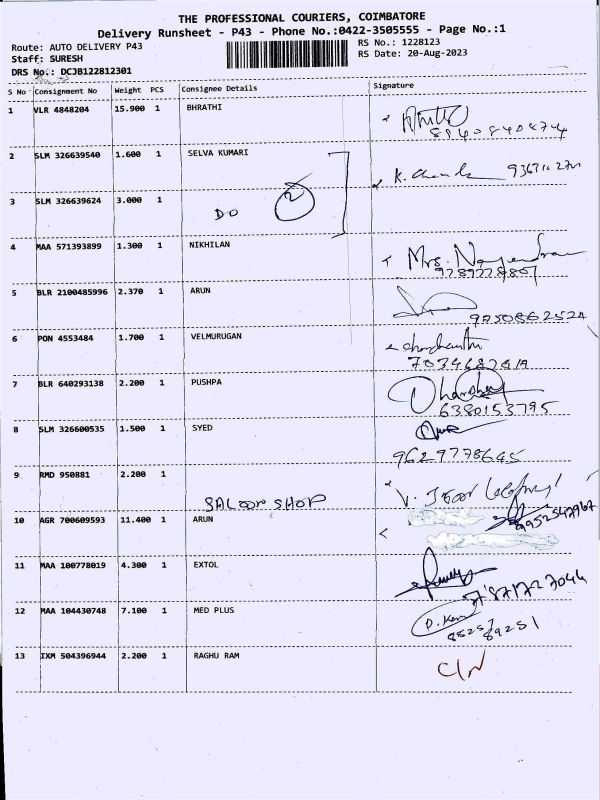 THE PROFESSIONAL COURIERS, COIMBATORE
Delivery Runsheet - P43 - Phone No.:0422-3505555 - Page No.:1
Route: AUTO DELIVERY P43
RS No.: 1228123
Staff: SURESH
RS Date: 20-Aug-2023
DRS No.: DCJB122812301
S No Consignment No Weight PCS Consignee Details Signature
1 VLR 4848204 15.900 1 BHRATHI
2 SLM 326639540 1.600 1 SELVA KUMARI
3 SLM 326639624 3.000 1
DO 2
4 MAA 571393899 1.300 1 NIKHILAN
Mrs.
5 BLR 2100485996 2.370 1 ARUN
6 PON 4553484 1.700 1 VELMURUGAN
7 BLR 640293138 2.200 1 PUSHPA
6380153795
8 SLM 326600535 1.500 1 SYED
9629778645
9 RMD 950881 2.200 1
SALOON SHOP
10 AGR 700609593 11.400 1 ARUN
11 MAA 100778019 4.300 1 EXTOL
12 MAA 104430748 7.100 1 MED PLUS
89251
13 IXM 504396944 2.200 1 RAGHU RAM
C/N